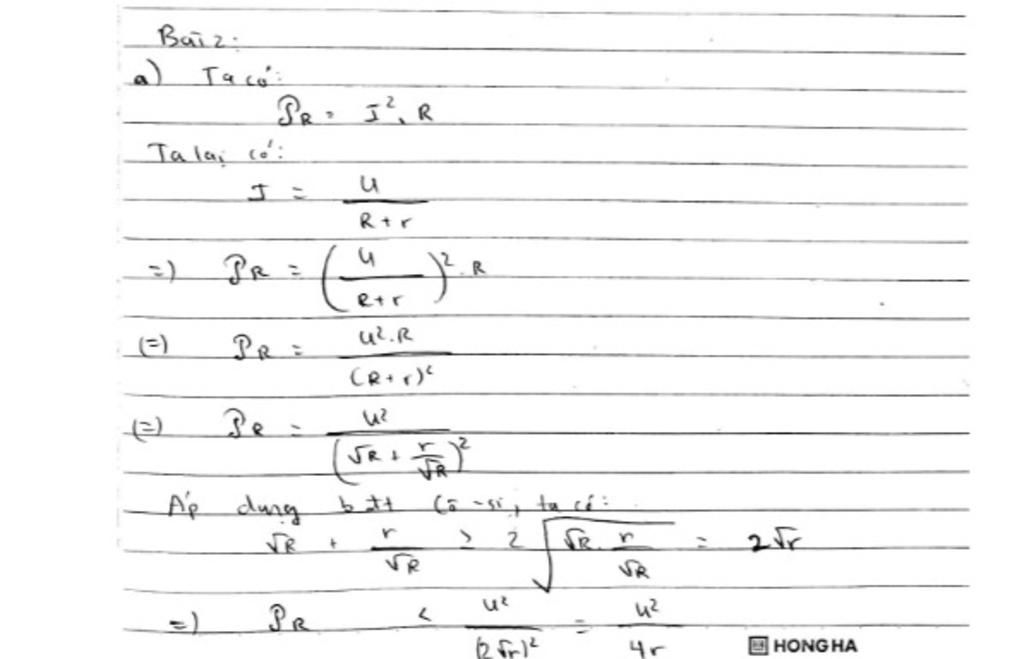 Bài 2:
a) Ta có:
P_R = I². R
Ta lại có:
I = U / (R + r)
=) P_R = (U / (R+r))² . R
(=) P_R = U².R / (R+r)²
(=) P_R = U² / (√R + r/√R)²
Áp dụng bđt Cô-si, ta có:
√R + r/√R ≥ 2√(√R . r/√R) = 2√r
=) P_R ≤ U² / (2√r)² = U² / 4r
HONG HA